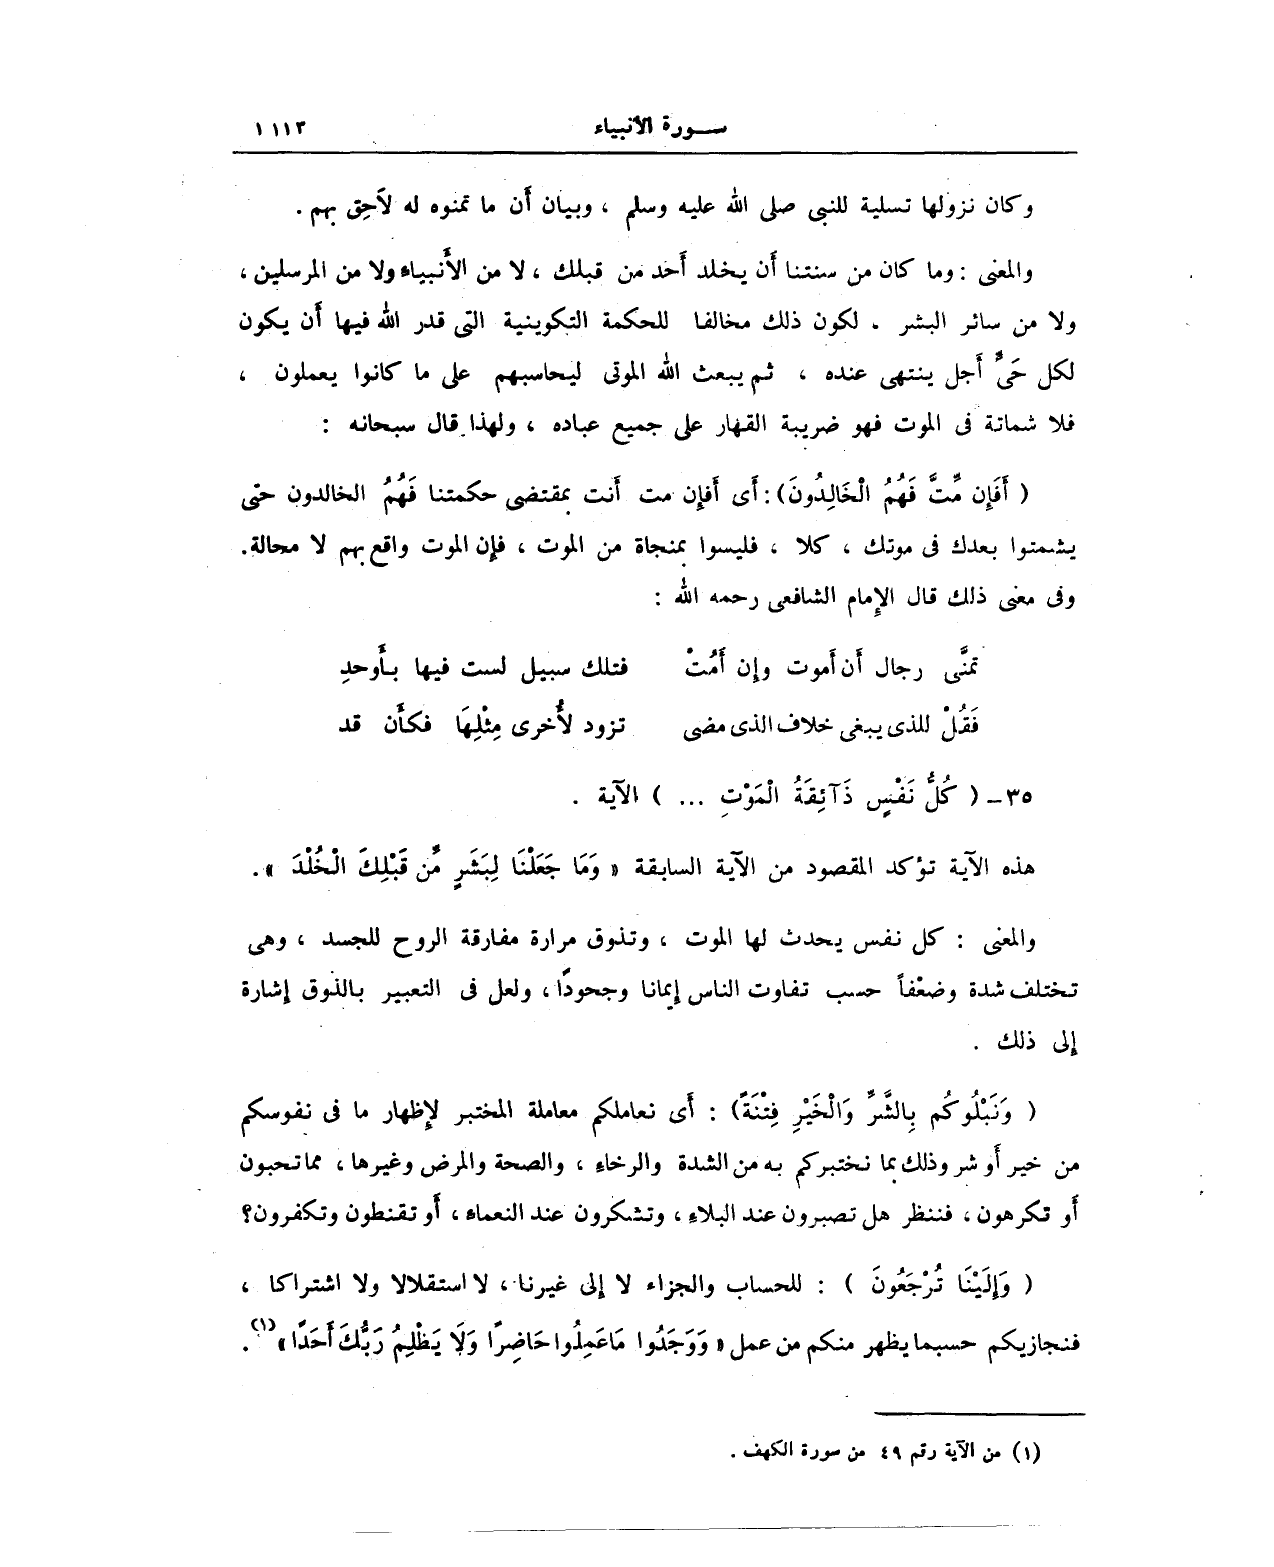 سورة الأنبياء ١١١٣
وكان نزولها تسلية للنبى صلى الله عليه وسلم ، وبيان أن ما تمنوه له لاَحِق بهم .
والمعنى : وما كان من سنتنا أن يخلد أحد من قبلك ، لا من الأنبياء ولا من المرسلين ،
ولا من سائر البشر . لكون ذلك مخالفا للحكمة التكوينية التى قدر الله فيها أن يكون
لكل حَىٍّ أجل ينتهى عنده ، ثم يبعث الله الموتى ليحاسبهم على ما كانوا يعملون ،
فلا شماتة فى الموت فهو ضريبة القهار على جميع عباده ، ولهذا قال سبحانه :
( أَفَإِن مِّتَّ فَهُمُ الْخَالِدُونَ) : أى أفإن مت أنت بمقتضى حكمتنا فَهُمُ الخالدون حتى
يشمتوا بعدك فى موتك ، كلا ، فليسوا بمنجاة من الموت ، فإن الموت واقع بهم لا محالة.
وفى معنى ذلك قال الإمام الشافعى رحمه الله :
تمنَّى رجال أن أموت وإن أَمُتْ فتلك سبيل لست فيها بأَوحدِ
فَقُلْ للذى يبغى خلاف الذى مضى تزود لأُخرى مِثْلِهَا فكأَن قد
٣٥ - ( كُلُّ نَفْسٍ ذَآئِقَةُ الْمَوْتِ ... ) الآية .
هذه الآية تؤكد المقصود من الآية السابقة « وَمَا جَعَلْنَا لِبَشَرٍ مِّن قَبْلِكَ الْخُلْدَ » .
والمعنى : كل نفس يحدث لها الموت ، وتذوق مرارة مفارقة الروح للجسد ، وهى
تختلف شدة وضعْفاً حسب تفاوت الناس إيمانا وجحودًا ، ولعل فى التعبير بالذوق إشارة
إلى ذلك .
( وَنَبْلُوكُم بِالشَّرِّ وَالْخَيْرِ فِتْنَةً) : أى نعاملكم معاملة المختبر لإظهار ما فى نفوسكم
من خير أو شر وذلك بما نختبركم به من الشدة والرخاء ، والصحة والمرض وغيرها ، مما تحبون
أو تكرهون ، فننظر هل تصبرون عند البلاء ، وتشكرون عند النعماء ، أو تقنطون وتكفرون؟
( وَإِلَيْنَا تُرْجَعُونَ ) : للحساب والجزاء لا إلى غيرنا ، لا استقلالا ولا اشتراكا ،
فنجازيكم حسبما يظهر منكم من عمل « وَوَجَدُوا مَا عَمِلُوا حَاضِرًا وَلَا يَظْلِمُ رَبُّكَ أَحَدًا » (١) .
(١) من الآية رقم ٤٩ من سورة الكهف .